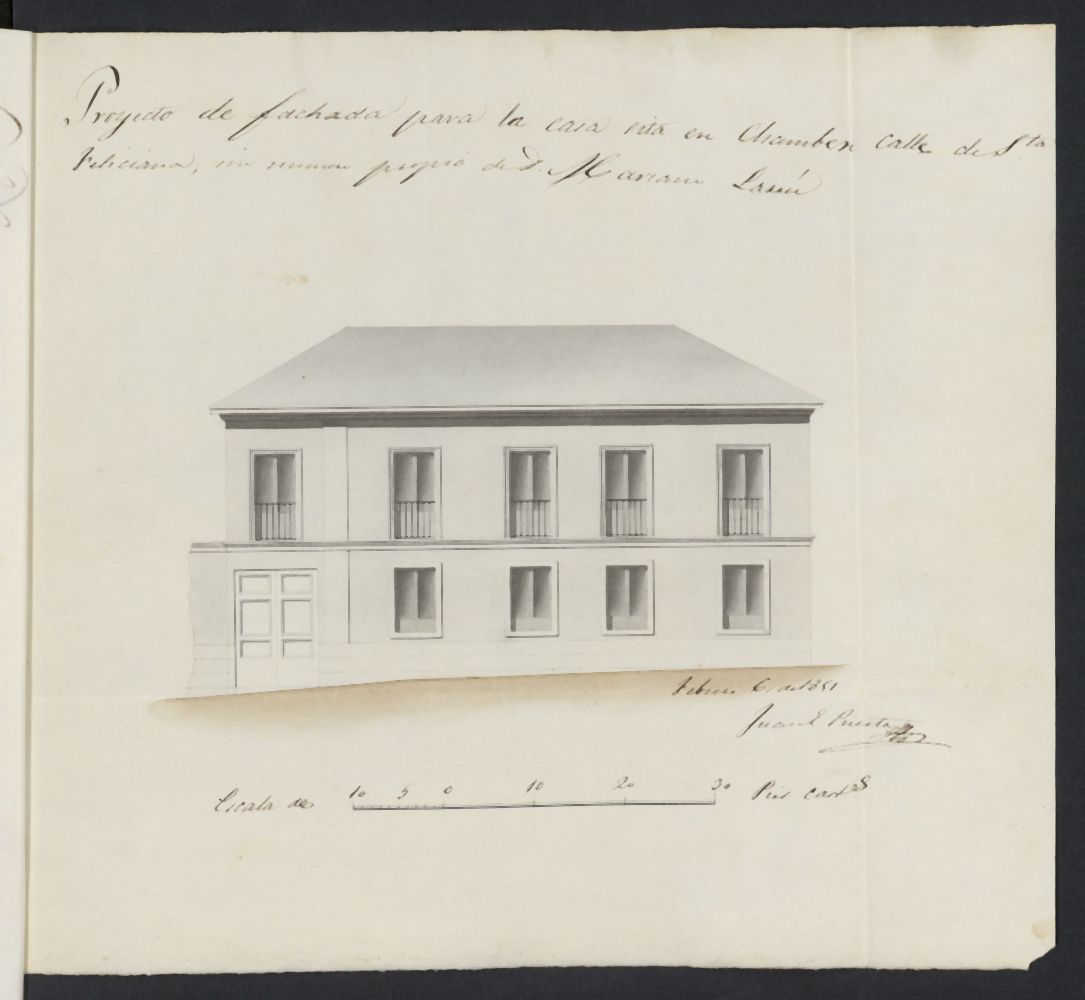 Proyecto de fachada para la casa sita en Chamberi calle de Sta
Feliciana, sin numero propia de D. Mariano
Febrero 6 de 1851
Juan E Puerta
Escala de 10 5 0 10 20 30 Pies casts